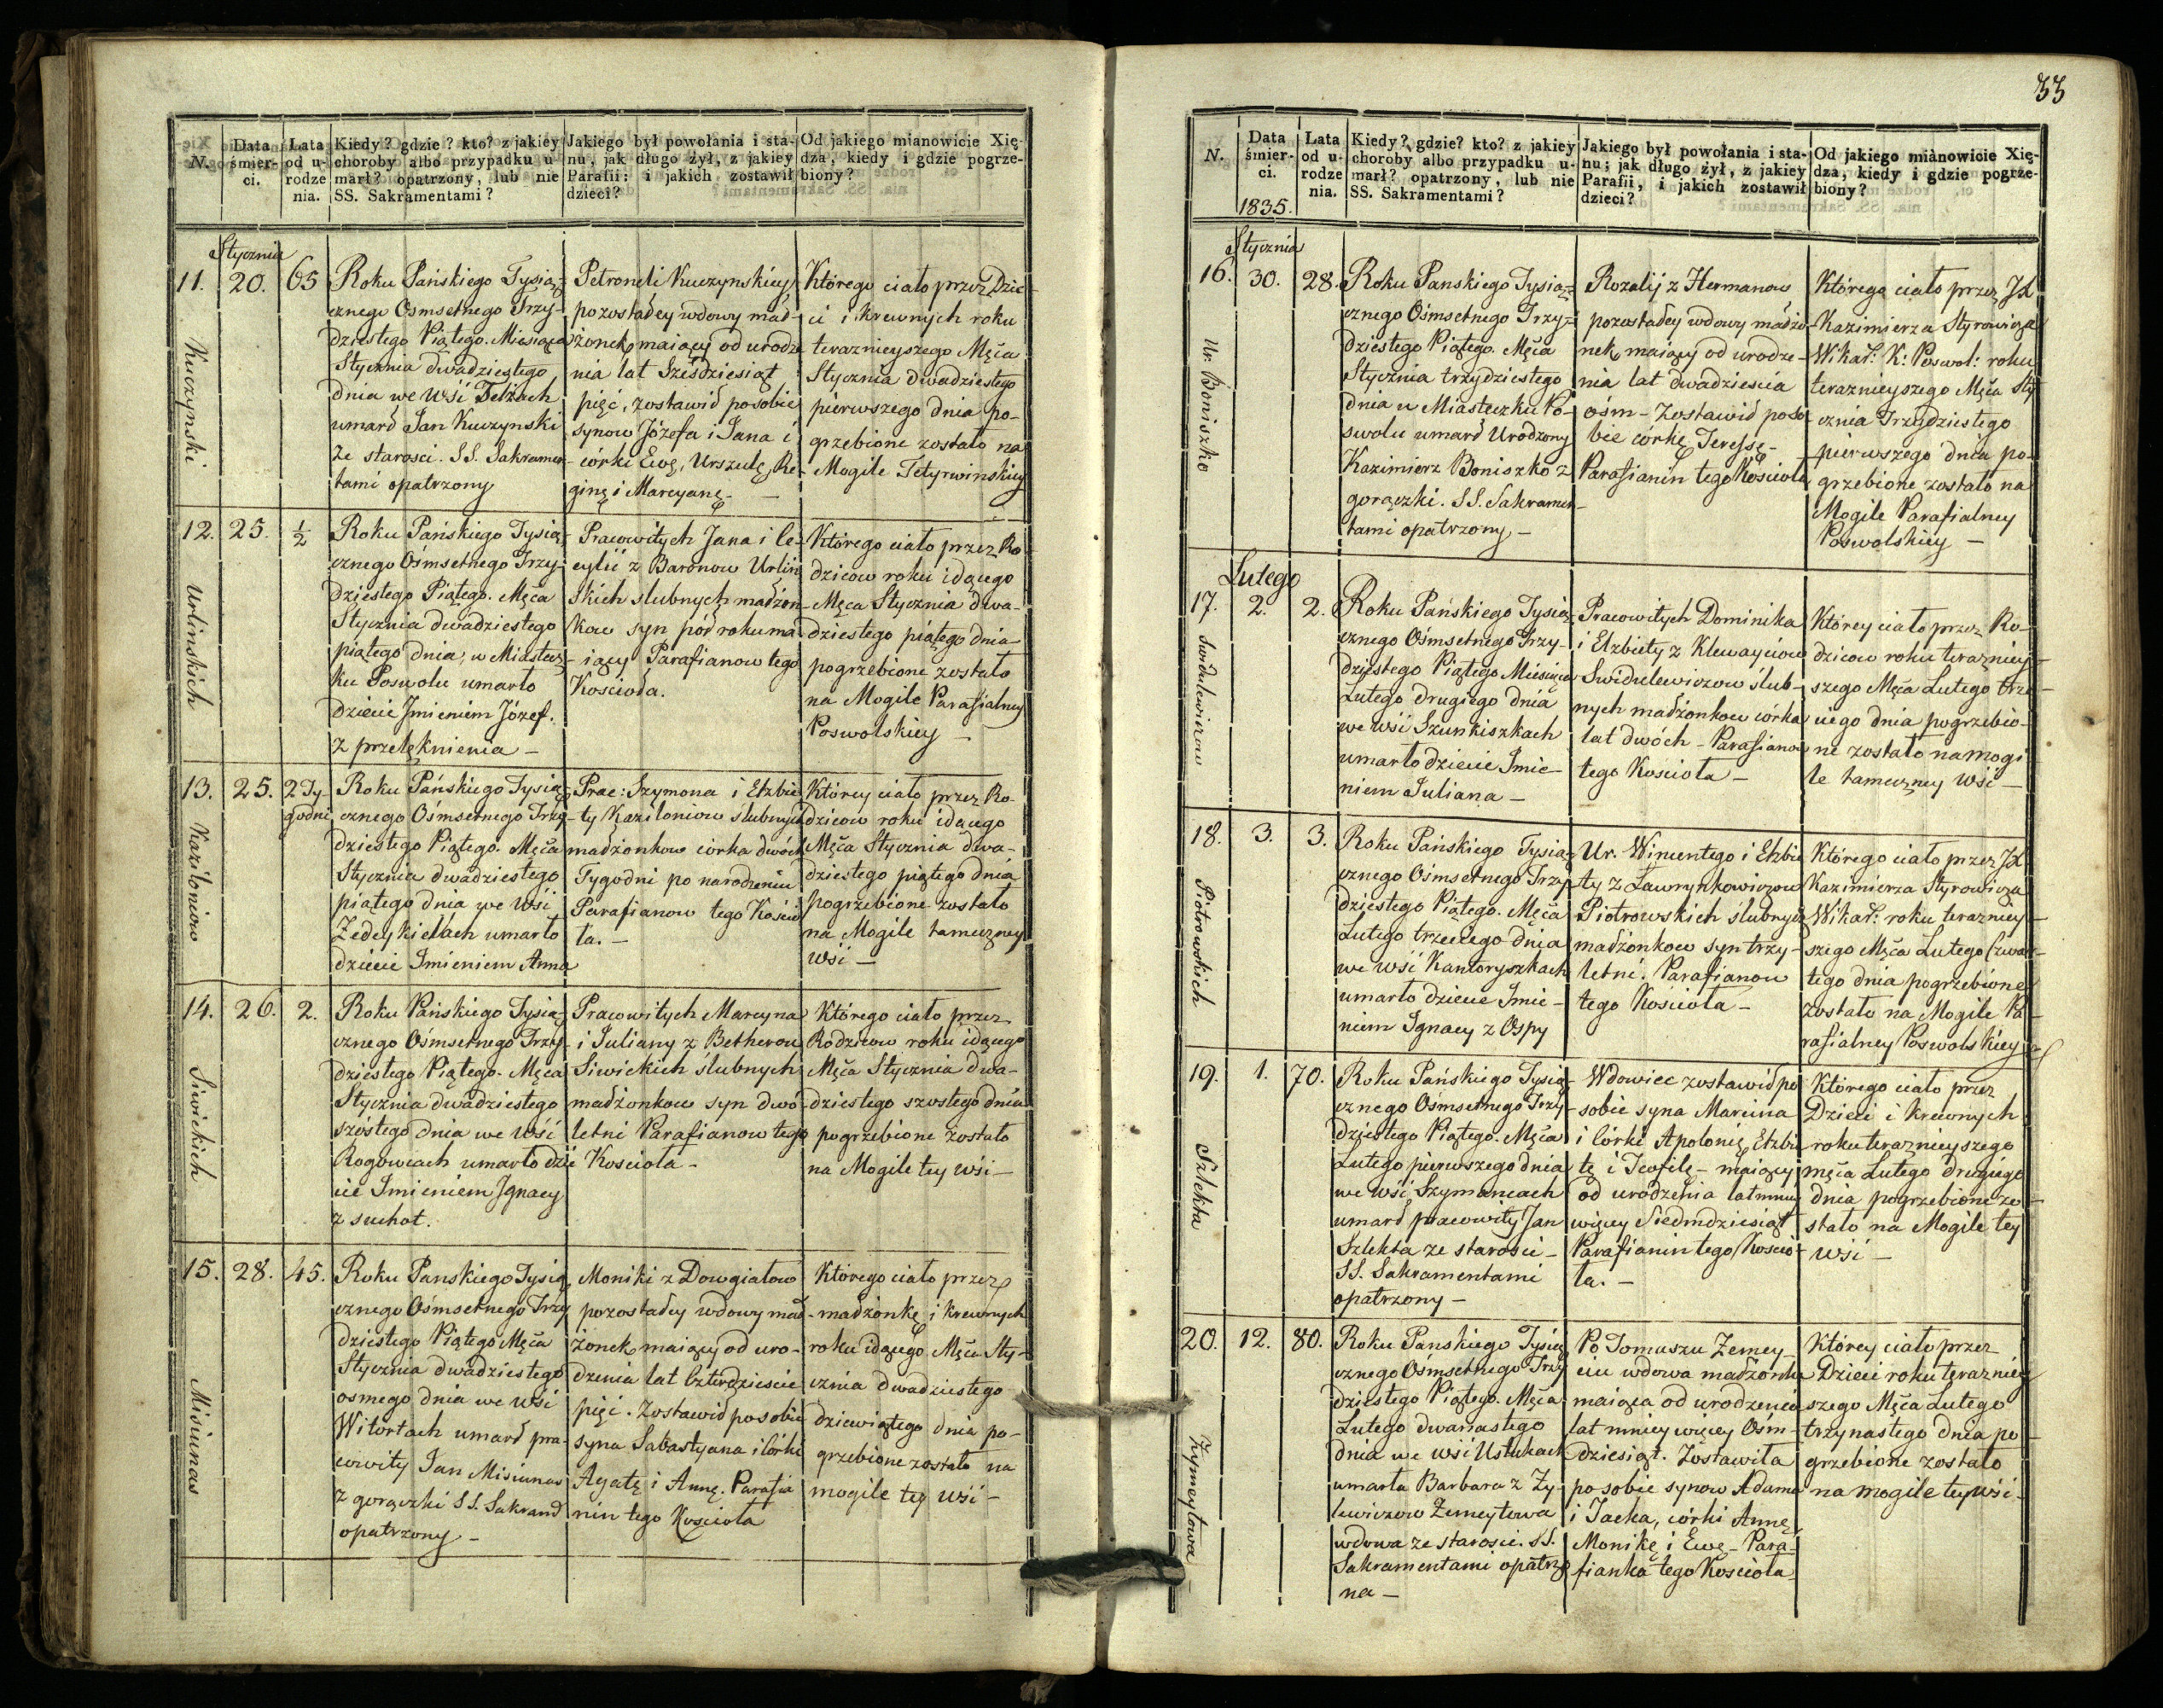 N.
Data
śmier-
ci.
Lata
od u-
rodze
nia.
Kiedy? gdzie? kto? z jakiey
choroby albo przypadku u-
marł? opatrzony, lub nie
SS. Sakramentami?
Jakiego był powołania i sta-
nu, jak długo żył, z jakiey
Parafii: i jakich zostawił
dzieci?
Od jakiego mianowicie Xię-
dza, kiedy i gdzie pogrze-
biony?
Stycznia
11.
20.
65
Kuczynski
Roku Pańskiego Tysią-
cznego Osmsetnego Trzy-
dziestego Piątego. Miesiąca
Stycznia dwadziestego
dnia we Wśi Telżach
umarł Jan Kuczynski
ze starosci. SS. Sakramen-
tami opatrzony
Petroneli Kuczynskiey
pozostałey wdowy mał-
żonek maiący od urodze
nia lat Sześdziesiąt
pięć, zostawił posobie
synow Józefa i Jana i
córki Ewę, Urszulę, Re-
ginę i Marcyanę. —
Którego ciało przez Dzie-
ci i krewnych roku
teraznieyszego Męca
Stycznia dwadziestego
pierwszego dnia po-
grzebione zostało na
Mogile Tetyrwinskiey
12.
25.
½
Urlinskich
Roku Pańskiego Tysią-
cznego Ośmsetnego Trzy-
dziestego Piątego. Męca
Stycznia dwadziestego
piątego dnia, w Miastecz-
ku Poswolu umarło
dziecie Jmieniem Józef.
z przelęknienia —
Pracowitych Jana i Ce-
cylii z Baronow Urlin
skich slubnych małżon-
kow syn pół roku ma-
iący Parafianow tego
Kościoła.
Którego ciało przez Ro
dzicow roku idącego
Męca Stycznia dwa-
dziestego piątego dnia
pogrzebione zostało
na Mogile Parafialney
Poswolskiey —
13.
25.
2 Ty-
godni
Kaziloniow
Roku Pańskiego Tysią-
cznego Ośmsetnego Trzy-
dziestego Piątego. Męca
Stycznia dwadziestego
piątego dnia we Wśi
Zedeykielach umarło
dziecie Jmieniem Anna
Prac: Szymona i Elzbie
ty Kaziloniow ślubnych
małżonkow córka dwóch
Tygodni po narodzeniu
Parafianow tego Kościo
ła. —
Którey ciało przez Ro-
dzicow roku idącego
Męca Stycznia dwa-
dziestego piątego dnia
pogrzebione zostało
na Mogile tameczney
Wśi —
14.
26.
2.
Siwickich
Roku Pańskiego Tysią-
cznego Ośmsetnego Trzy-
dziestego Piątego. Męca
Stycznia dwadziestego
szóstego dnia we Wśi
Rogowcach umarło dzie
cie Jmieniem Jgnacy
z suchot.
Pracowitych Marcyna
i Juliany z Betherow
Siwickich ślubnych
małżonkow syn dwó-
letni Parafianow tego
Kościoła —
Którego ciało przez
Rodzicow roku idącego
Męca Stycznia dwa-
dziestego szostego dnia
pogrzebione zostało
na Mogile tey wśi —
15.
28.
45.
Misiunas
Roku Panskiego Tysią-
cznego Ośmsetnego Trzy
dziestego Piątego Męca
Stycznia dwadziestego
osmego dnia we wśi
Witortach umarł pra-
cowity Jan Misiunas
z gorączki SS. Sakram
opatrzony —
Moniki z Dowgiałow
pozostałey wdowy mał-
żonek maiący od uro-
dzenia lat Czterdziescie
pięć. Zostawił posobie
syna Sabastyana i Córki
Agatę i Annę. Parafia
nin tego Kościoła
Którego ciało przez
małżonkę i krewnych
roku idącego Męca Sty-
cznia dwadziestego
dziewiątego dnia po-
grzebione zostało na
mogile tey wśi —
33
N.
Data
śmier-
ci.
1835.
Lata
od u-
rodze
nia.
Kiedy? gdzie? kto? z jakiey
choroby albo przypadku u-
marł? opatrzony, lub nie
SS. Sakramentami?
Jakiego był powołania i sta-
nu; jak długo żył, z jakiey
Parafii, i jakich zostawił
dzieci?
Od jakiego mianowicie Xię-
dza, kiedy i gdzie pogrze-
biony?
Stycznia
16.
30.
28.
Ur. Boniszko
Roku Panskiego Tysią-
cznego Ośmsetnego Trzy-
dziestego Piątego. Męca
Stycznia trzydziestego
dnia w Miasteczku Po-
swolu umarł Urodzony
Kazimierz Boniszko z
gorączki. SS. Sakramen-
tami opatrzony —
Rozalij z Hermanow
pozostałey wdowy małżo
nek maiący od urodze-
nia lat dwadziescia
ośm — Zostawił poso
bie córkę Teressę —
Parafianin tego Kościoła
Którego ciało przez JX
Kazimierza Styrowicza
Wikar: K: Poswol: roku
teraznieyszego Męca Sty
cznia Trzydziestego
pierwszego dnia po-
grzebione zostało na
Mogile Parafialney
Poswolskiey —
Lutego
17.
2.
2.
Swidulewiczow
Roku Pańskiego Tysią-
cznego Ośmsetnego Trzy-
dziestego Piątego Miesiąca
Lutego drugiego dnia
we wśi Szunkiszkach
umarło dziecie Jmie-
niem Juliana —
Pracowitych Dominika
i Elzbiety z Klewayciow
Swidulewiczow ślub-
nych małżonkow córka
lat dwóch — Parafianow
tego Kościoła —
Którey ciało przez Ro-
dzicow roku terazniey-
szego Męca Lutego trze-
ciego dnia pogrzebio-
ne zostało na mogi
le tameczney wśi —
18.
3.
3.
Piotrowskich
Roku Pańskiego Tysią-
cznego Ośmsetnego Trzy
dziestego Piątego. Męca
Lutego trzeciego dnia
we wśi Kantoryszkach
umarło dziecie Jmie-
niem Jgnacy z Ospy
Ur. Wincentego i Elzbie
ty z Ławrynkowiczow
Piotrowskich ślubnych
małżonkow syn trzy-
letni. Parafianow
tego Kościoła —
Którego ciało przez JX
Kazimierza Styrowicza
Wikar: roku terazniey-
szego Męca Lutego Czwar-
tego dnia pogrzebione
zostało na Mogile Pa-
rafialney Poswolskiey
19.
1.
70.
Szlekta
Roku Pańskiego Tysią-
cznego Ośmsetnego Trzy
dziestego Piątego. Męca
Lutego pierwszego dnia
we wśi Szymancach
umarł pracowity Jan
Szlekta ze starosci —
SS. Sakramentami
opatrzony —
Wdowiec zostawił po
sobie syna Marcina
i Córki Apolonię, Elzbie
tę i Teofilę — maiący
od urodzenia lat mniey
więcey Siedmdziesiąt
Parafianin tego Koscio
ła. —
Którego ciało przez
Dzieci i krewnych
roku teraznieyszego
męca Lutego drugiego
dnia pogrzebione zo-
stało na Mogile tey
wśi —
20.
12.
80.
Zymeytowa —
Roku Panskiego Tysią
cznego Ośmsetnego Trzy
dziestego Piątego. Męca
Lutego dwanastego
dnia we wśi Ustukach
umarła Barbara z Zy-
lewiczow Zemeytowa
wdowa ze starosci. SS.
Sakramentami opatrzo
na —
Po Tomaszu Zemey-
ciu wdowa małżonka
maiąca od urodzenia
lat mniey więcey Ośm-
dziesiąt. Zostawiła
po sobie synow Adama
i Jacka, córki Annę,
Monikę i Ewę — Para-
fianka tego Kościoła
Którey ciało przez
Dzieci roku terazniey
szego Męca Lutego
trzynastego dnia po
grzebione zostało
na mogile tey wśi —